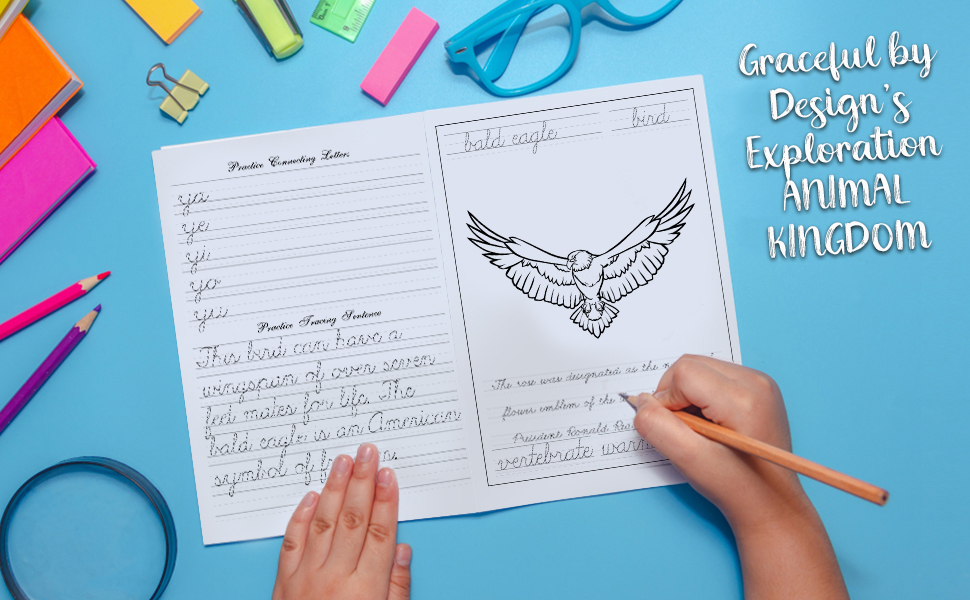 Graceful by
Design's
Exploration
ANIMAL
KINGDOM
Practice Connecting Letters
ya
ye
yi
yo
yu
Practice Tracing Sentence
This bird can have a
wingspan of over seven
feet mates for life. The
bald eagle is an American
symbol of
bald eagle bird
The rose was designated as the
flower emblem of the
President Ronald
vertebrate